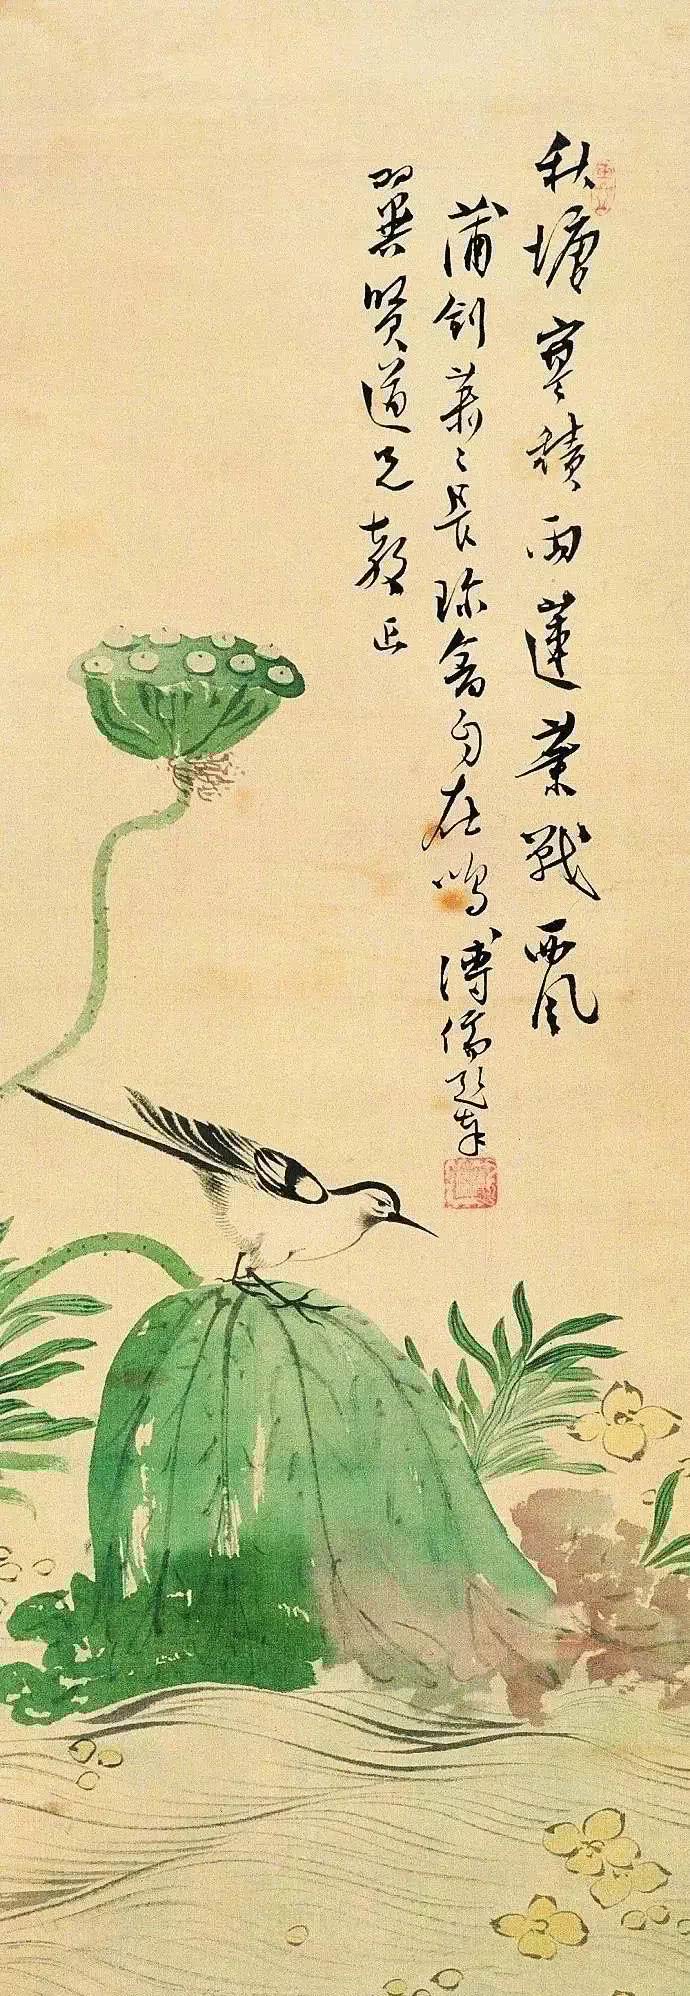 秋塘寒積雨蓮葉戰西風
蒲劍葉々長珍禽自在鳴溥儒題奉
翼賢道兄教正